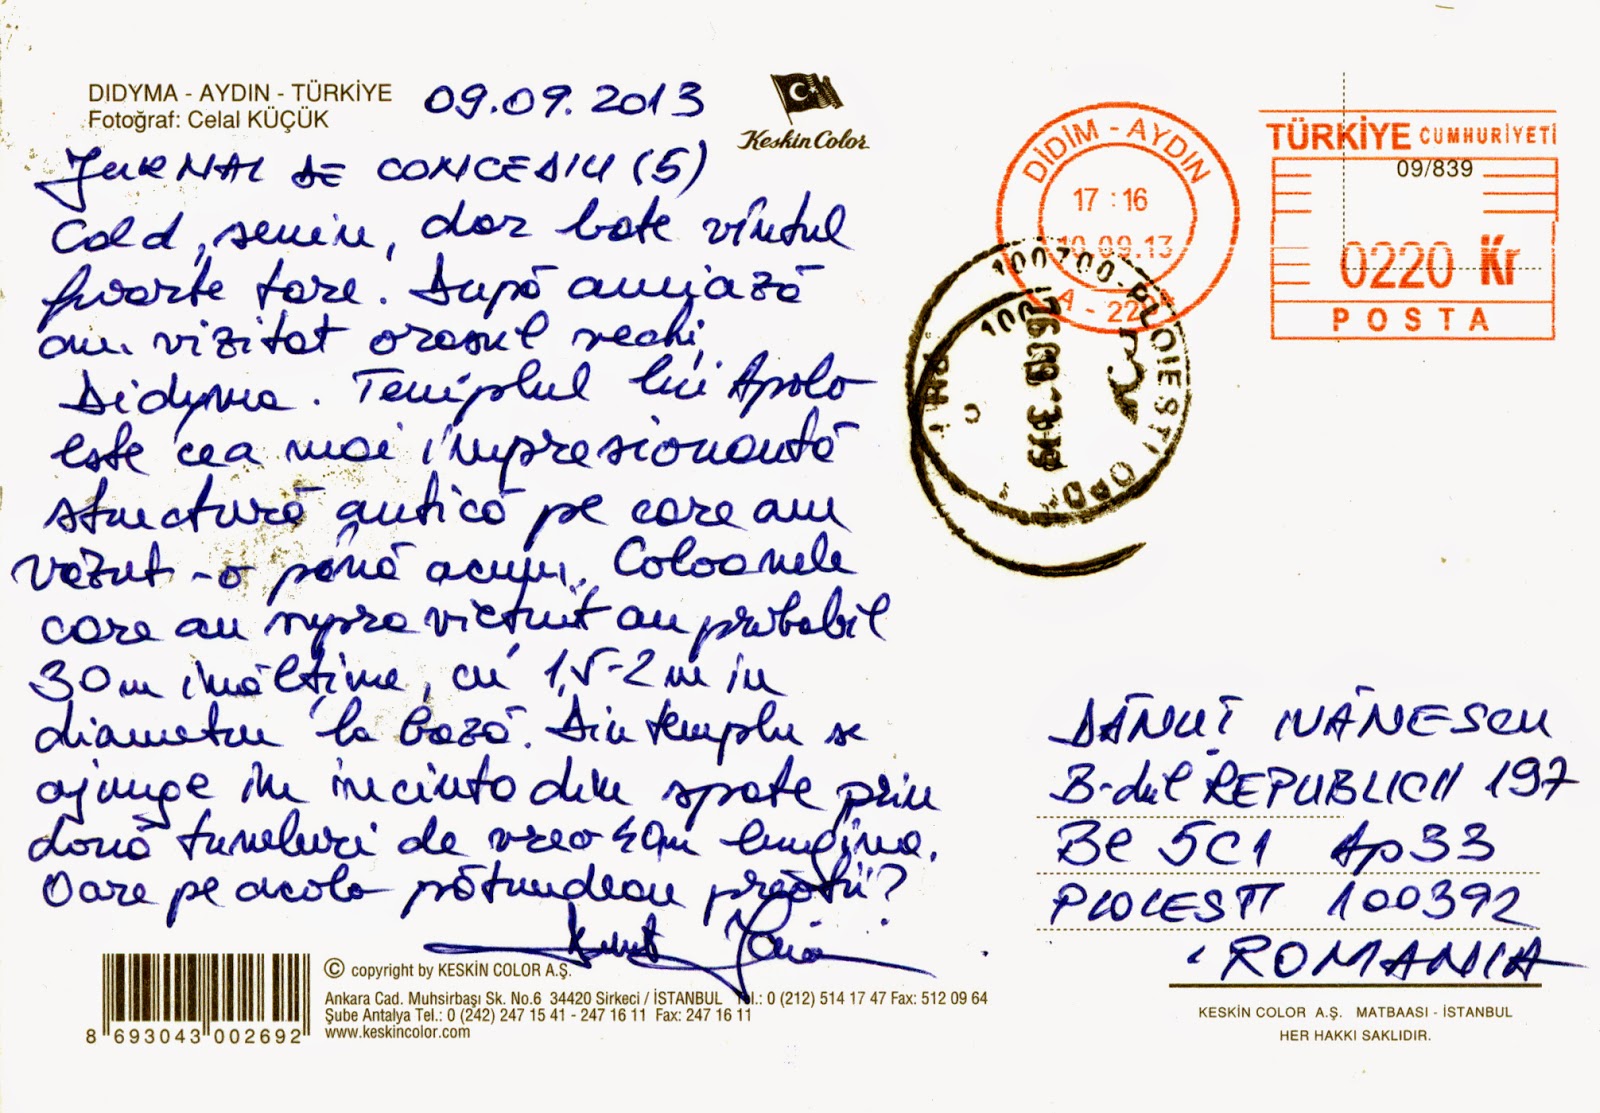 DIDYMA - AYDIN - TÜRKİYE
Fotoğraf: Celal KÜÇÜK
09.09.2013
Keskin Color
JURNAL DE CONCEDIU (5)
Cald, senin, dar bate vîntul
foarte tare. După amiază
am vizitat orașul vechi,
Didyma. Templul lui Apolo
este cea mai impresionantă
structură antică pe care am
văzut-o până acum. Coloanele
care au supraviețuit au probabil
30m înălțime, cu 1,5-2m în
diametru la bază. Din templu se
ajunge în incinta din spate prin
două tuneluri de vreo 40m lungime.
Oare pe acolo pătrundeau preoții?
© copyright by KESKİN COLOR A.Ş.
Ankara Cad. Muhsirbaşı Sk. No.6 34420 Sirkeci / İSTANBUL Tel.: 0 (212) 514 17 47 Fax: 512 09 64
Şube Antalya Tel.: 0 (242) 247 15 41 - 247 16 11 Fax: 247 16 11
www.keskincolor.com
8 693043 002692
DİDİM - AYDIN
17:16
10.09.13
A - 229
TÜRKİYE CUMHURİYETİ
09/839
0220 Kr
POSTA
100700-PLOIESTI
DĂNUȚ IVĂNESCU
B-dul REPUBLICII 197
Bl 5C1 Ap 33
PLOIESTI 100392
ROMANIA
KESKİN COLOR A.Ş. MATBAASI - İSTANBUL
HER HAKKI SAKLIDIR.